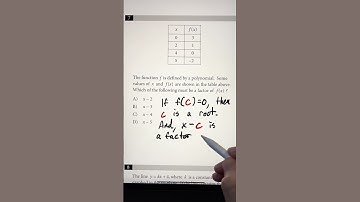 7
x f(x)
0 3
2 1
4 0
5 -2
The function f is defined by a polynomial. Some
values of x and f(x) are shown in the table above.
Which of the following must be a factor of f(x) ?
A) x – 2
B) x – 3
C) x – 4
D) x – 5
If f(c)=0, then
c is a root.
And, x-c is
a factor
8
The line y = kx + 4, where k is a constant